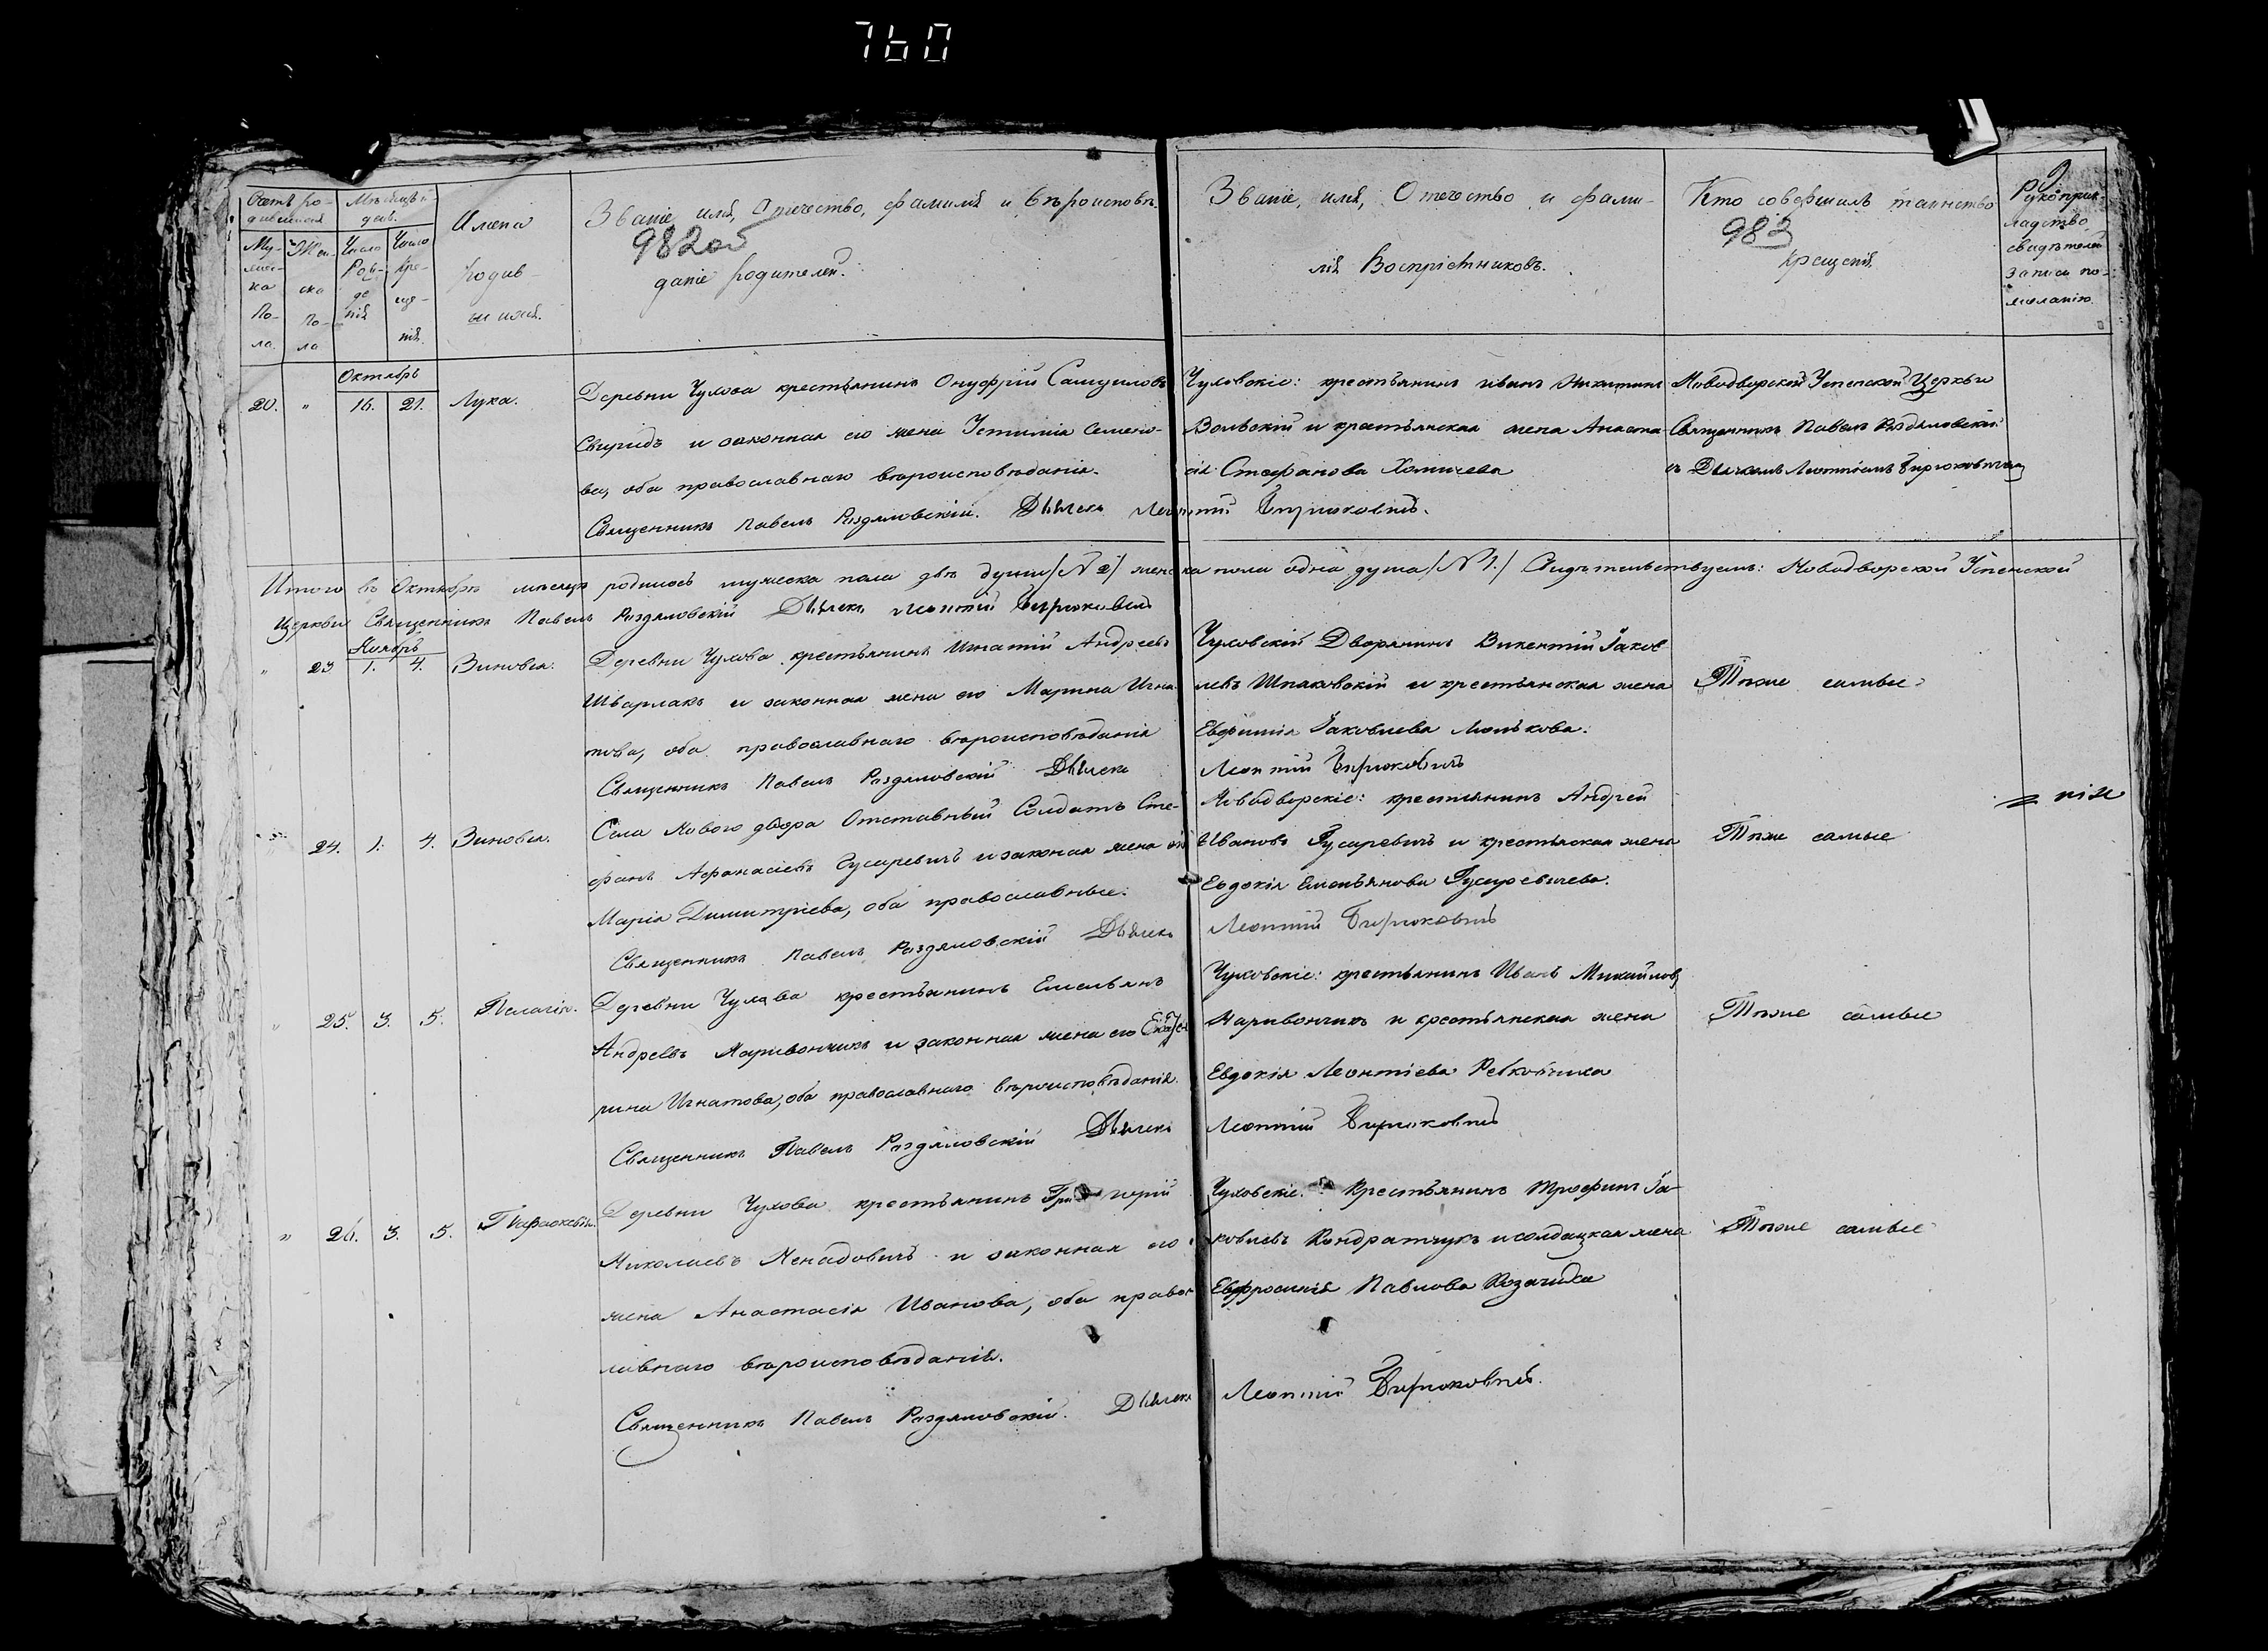 760
Счетъ ро-
дившихся
Мѣсяцъ и
день.
Имена
родив-
шихся.
Званіе, имя, Отечество, фамилія и вѣроисповѣ-
982об
даніе родителей.
Званіе, имя, Отечество и фами-
лія Воспріемниковъ.
Кто совершилъ таинство
983
крещенія
Рукоприк-
ладство
свидѣтелей
записи по
желанію.
Му-
жес-
ка
По-
ла.
Жен-
ска
По-
ла
Число
Рож-
де
нія
Число
Кре-
ще-
нія.
Октябрь
20. " 16. 21. Лука.
Деревни Чухова крестьянинъ Онуфрій Самуиловъ
Свиридъ и законная его жена Устинія Семено-
ва, оба православнаго вѣроисповѣданія.
Священникъ Павелъ Раздяловскій. Дьячекъ Леонтій Бирюковичъ.
Чуховскіе: крестьянинъ Иванъ Никитинъ
Вольскій и крестьянская жена Анаста-
сія Стефанова Хомичева
Новодворской Успенской Церкви
Священникъ Павелъ Раздяловскій
съ Дьячкомъ Леонтіемъ Бирюковичемъ
Итого въ Октябрѣ мѣсяцѣ родилось мужеска пола двѣ души /N 2/ женска пола одна душа /N 1./ Свидѣтельствуемъ: Новодворской Успенской
Церкви Священникъ Павелъ Раздяловскій Дьячекъ Леонтій Бирюковичъ
Ноябрь
" 23 1. 4. Зиновія.
Деревни Чухова крестьянинъ Игнатій Андреевъ
Шварлакъ и законная жена его Марина Игна-
това, оба православнаго вѣроисповѣданія
Священникъ Павелъ Раздяловскій Дьячекъ
Чуховскій Дворянинъ Викентій Іаков
левъ Шпаковскій и крестьянская жена
Евфимія Іаковлева
Леонтій Бирюковичъ
Тѣже самые
24. 1. 4. Зиновія.
Села Нового двора Отставный Солдатъ Сте-
фанъ Афанасіевъ Гусаревичъ и законая жена его
Марія Димитріева, оба православные.
Священникъ Павелъ Раздяловскій Дьячекъ
Новодворскіе: крестьянинъ Андрей
Ивановъ Гусаревичъ и крестьянская жена
Евдокія Емельянова Гусаревичева.
Леонтій Бирюковичъ
Тѣже самые
" 25. 3. 5. Пелагія.
Деревни Чухова крестьянинъ Емельянъ
Андреевъ Наривончикъ и законная жена его Екате-
рина Игнатова, оба православнаго вѣроисповѣданія.
Священникъ Павелъ Раздяловскій Дьячекъ
Чуховскіе: крестьянинъ Иванъ Михайловъ
Наривончикъ и крестьянская жена
Евдокія Леонтіева
Леонтій Бирюковичъ
Тѣже самые
" 26. 3. 5. Параскевія.
Деревни Чухова крестьянинъ Григорій
Николаевъ Ненадовичъ и законная его
жена Анастасія Иванова, оба правос
лавнаго вѣроисповѣданія.
Священникъ Павелъ Раздяловскій. Дьячекъ
Чуховскіе: Крестьянинъ Трофимъ Іа-
ковлевъ Кондратчукъ и солдацкая жена
Евфросинія Павлова Козачиха
Леонтій Бирюковичъ.
Тѣже самые